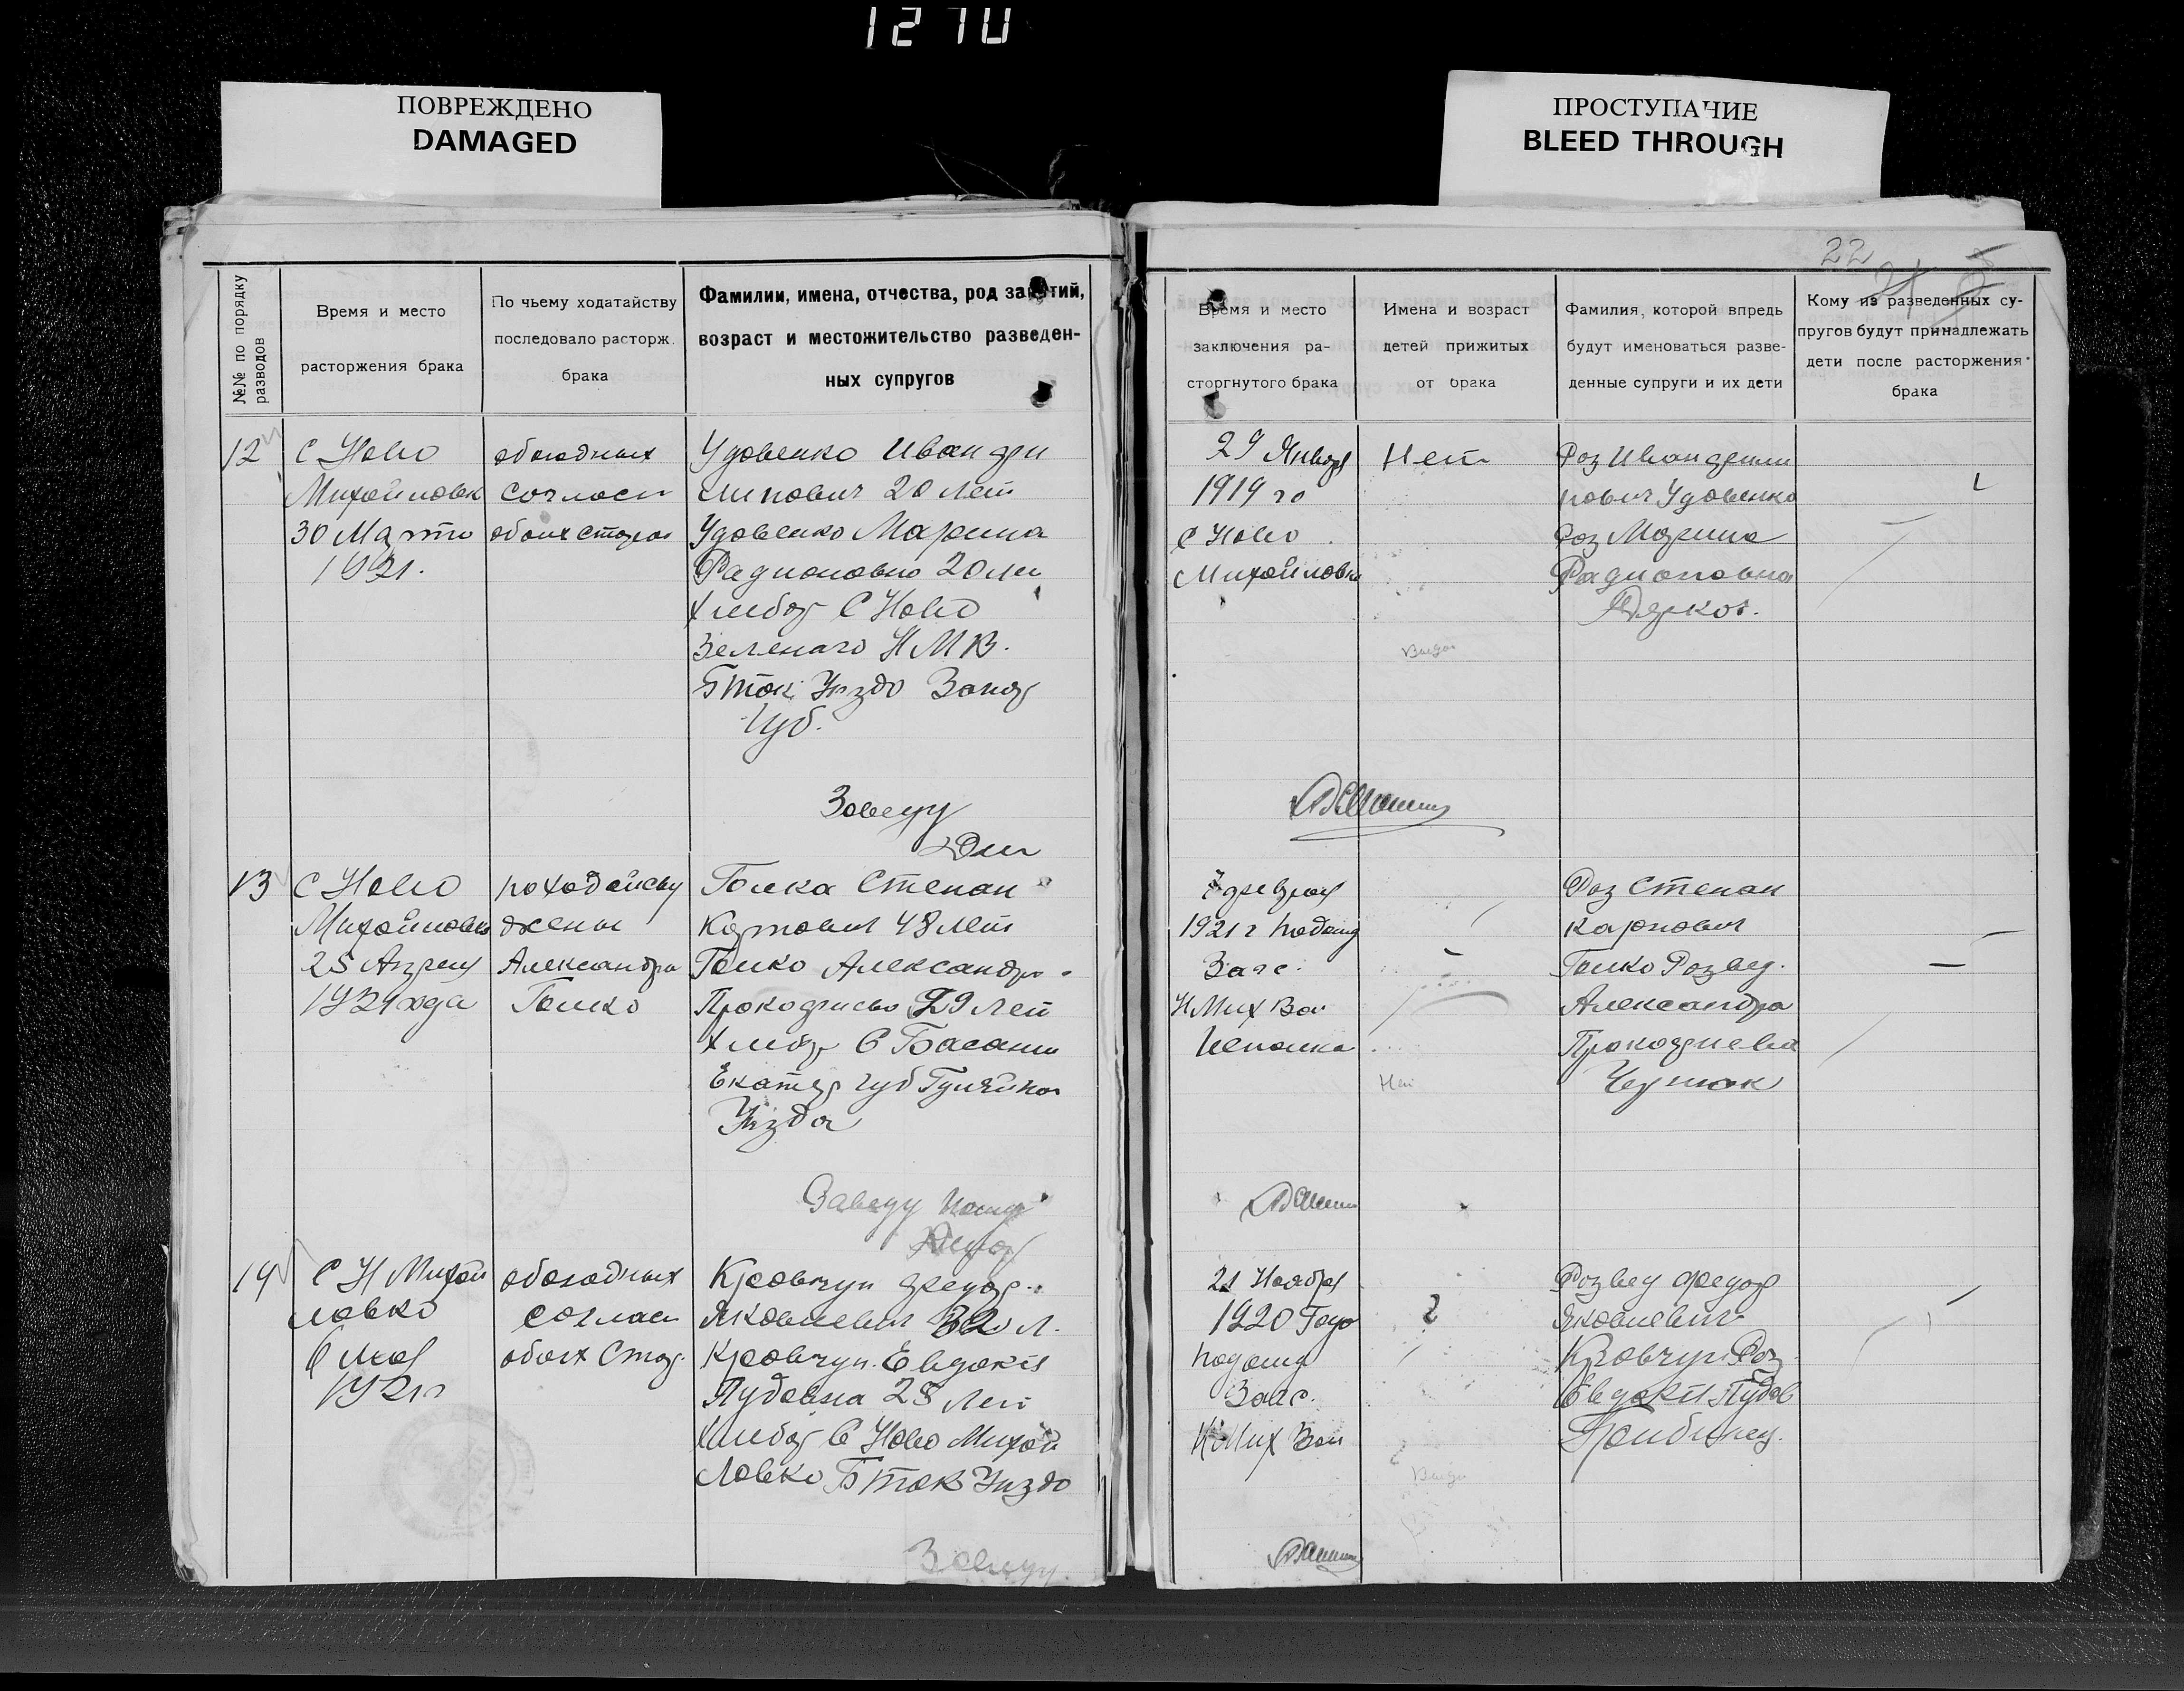 1270
ПОВРЕЖДЕНО
DAMAGED
ПРОСТУПАНИЕ
BLEED THROUGH
№№ по порядку
разводов
Время и место
расторжения брака
По чьему ходатайству
последовало расторж.
брака
Фамилии, имена, отчества, род занятий,
возраст и местожительство разведен-
ных супругов
12
С Ново
Михайловк
30 Марта
1921.
обоюдных
согласи
обоих сторон
Удовенко Иван
20 лет
Удовенко Марина
Радионовно 20 ле
Хлебор С Ново
Зеленаго Н М В.
Бток Уизда Запор
Губ.
Заведу
13
С Ново
Михайловко
25 Апреля
1921 года
жены
Александра
Голко
Голка Степан
Карпович 48 лет
Голко Александра
29 лет
Хлебор С Басань
Екатер губ Гуляйпол
Уизда
Заведу
14
С Н Михай
ловко
6 мая
1921г
обоюдных
согласи
обоих Стор.
Кровчун Федор
Яковлевич 32 л.
Кровчун Евдокия
Пудовна 28 лет
Хлебор С Ново Михай
ловко Бток Уизда
Заведу
22
Время и место
заключения ра-
сторгнутого брака
Имена и возраст
детей прижитых
от брака
Фамилия, которой впредь
будут именоваться разве-
денные супруги и их дети
Кому из разведенных су-
пругов будут принадлежать
дети после расторжения
брака
29 Январ
1919 го
С Ново
Михайловка
Нет
Роз Иван
Удовенко
Роз Марина
Радионовна
Февраля
1921 г
Загс.
Н Мих Вол
Нет
Роз Степан
Карпович
Голко Розвед.
Александра
Прокофиева
21 Ноября
1920 Года
Загс.
Н Мих Вол
Розвед Федор
Яковлевич
Кровчун Роз
Евдокия Пудов